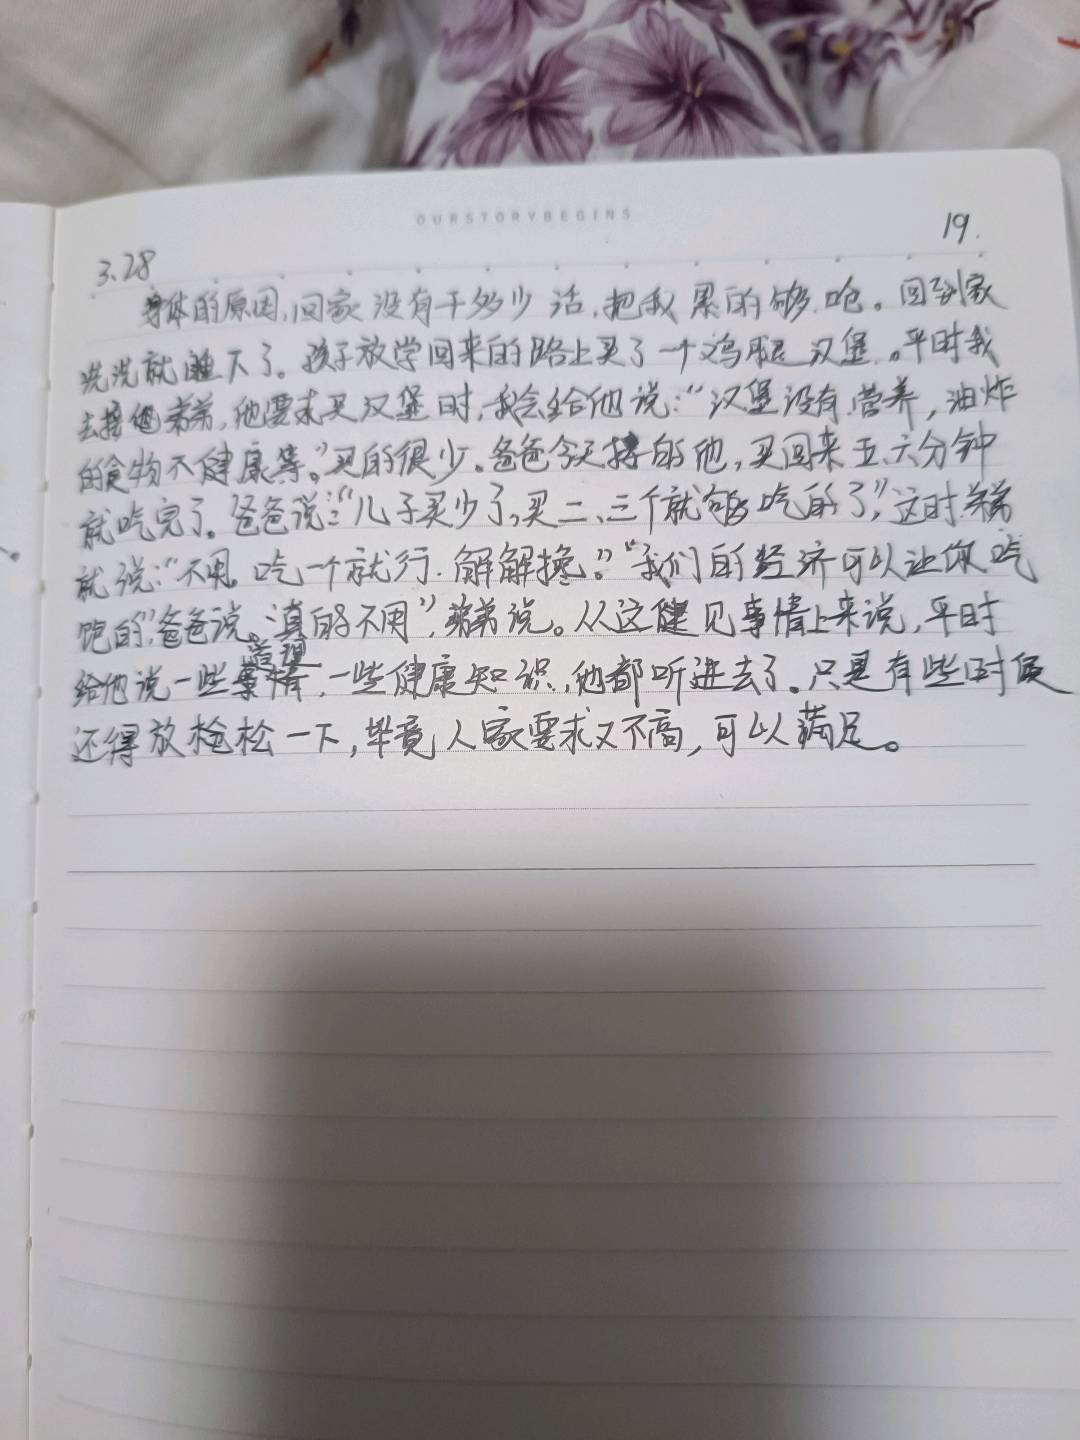 OURSTORYBEGINS
19.
3.28
身体的原因,回家没有干多少活,把我累的够呛。回到家
洗洗就睡下了。孩子放学回来的路上买了一个鸡腿汉堡.。平时我
去接他弟弟,他要求买汉堡时,我会给他说:“汉堡没有营养,油炸
的食物不健康等。”买的很少。爸爸今天接的他,买回来五、六分钟
就吃完了。爸爸说:“儿子买少了,买二、三个就够吃的了”,这时弟弟
就说:“不用。吃一个就行.解解搀。”“我们的经济可以让你吃
饱的”,爸爸说。“真的不用”,弟弟说。从这健见事情上来说,平时
给他说一些道理,一些健康知识,他都听进去了。只是有些时候
还得放松一下,毕竟人家要求又不高,可以满足。